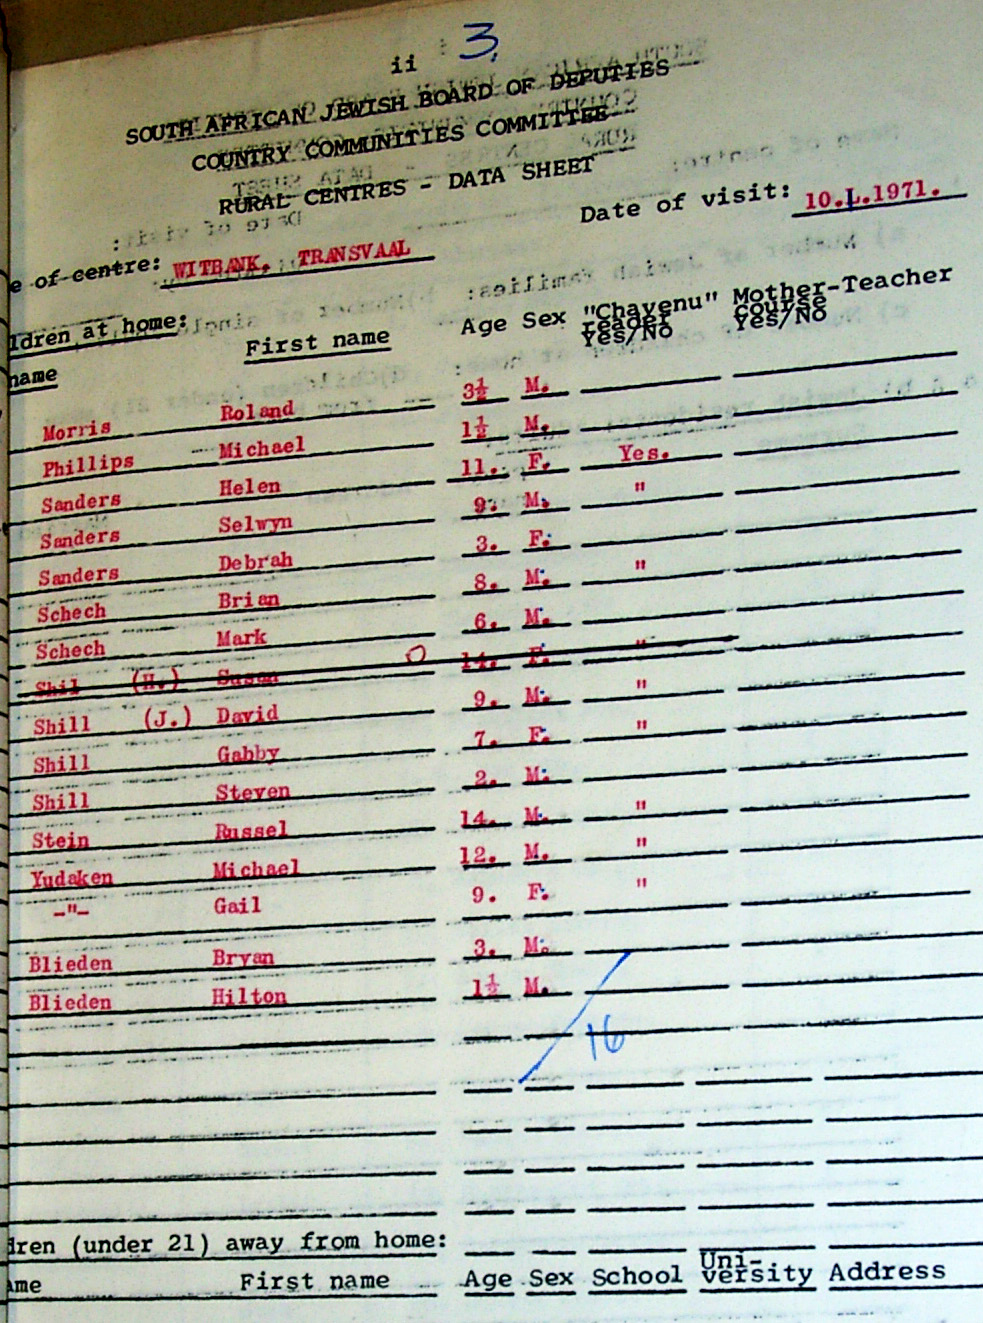 ii 3.
SOUTH AFRICAN JEWISH BOARD OF DEPUTIES
COUNTRY COMMUNITIES COMMITTEE
RURAL CENTRES - DATA SHEET
Date of visit: 10.L.1971.
e of centre: WITBANK, TRANSVAAL
ldren at home:
name First name Age Sex "Chavenu" reader Yes/No Mother-Teacher course Yes/No
Morris Roland 3½ M.
Phillips Michael 1½ M.
Sanders Helen 11. F. Yes.
Sanders Selwyn 9. M. "
Sanders Debrah 3. F.
Schech Brian 8. M. "
Schech Mark 6. M.
Shil (H.) Susan 14. F. "
Shill (J.) David 9. M. "
Shill Gabby 7. F. "
Shill Steven 2. M.
Stein Russel 14. M. "
Yudaken Michael 12. M. "
-"- Gail 9. F. "
Blieden Bryan 3. M.
Blieden Hilton 1½ M.
16
dren (under 21) away from home:
ame First name Age Sex School Uni-versity Address